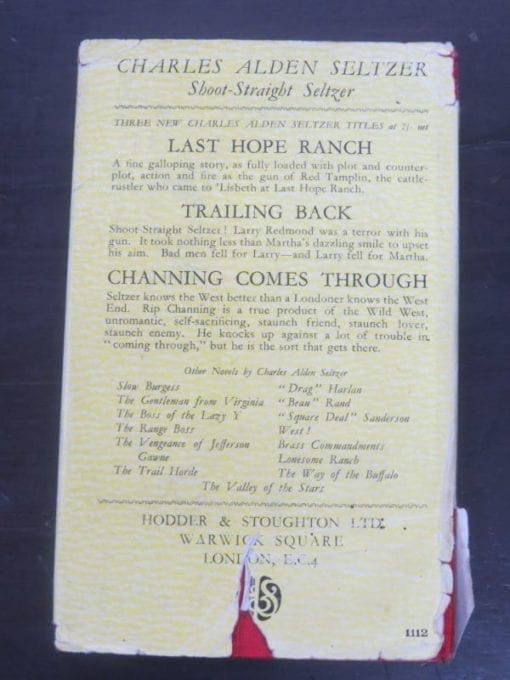 CHARLES ALDEN SELTZER
Shoot-Straight Seltzer
THREE NEW CHARLES ALDEN SELTZER TITLES at 7/- net
LAST HOPE RANCH
A fine galloping story, as fully loaded with plot and counter-
plot, action and fire as the gun of Red Tamplin, the cattle-
rustler who came to 'Lisbeth at Last Hope Ranch.
TRAILING BACK
Shoot-Straight Seltzer! Larry Redmond was a terror with his
gun. It took nothing less than Martha's dazzling smile to upset
his aim. Bad men fell for Larry—and Larry fell for Martha.
CHANNING COMES THROUGH
Seltzer knows the West better than a Londoner knows the West
End. Rip Channing is a true product of the Wild West,
unromantic, self-sacrificing, staunch friend, staunch lover,
staunch enemy. He knocks up against a lot of trouble in
"coming through," but he is the sort that gets there.
Other Novels by Charles Alden Seltzer
Slow Burgess
The Gentleman from Virginia
The Boss of the Lazy Y
The Range Boss
The Vengeance of Jefferson
Gawne
The Trail Horde
"Drag" Harlan
"Beau" Rand
"Square Deal" Sanderson
West!
Brass Commandments
Lonesome Ranch
The Way of the Buffalo
The Valley of the Stars
HODDER & STOUGHTON LTD.
WARWICK SQUARE
LONDON, E.C.4
1112